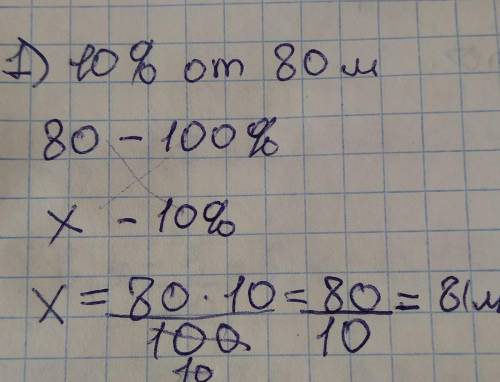 1) 10% от 80 м
80 - 100%
x - 10%
x = 80 · 10 / 100 = 80 / 10 = 8(м
10